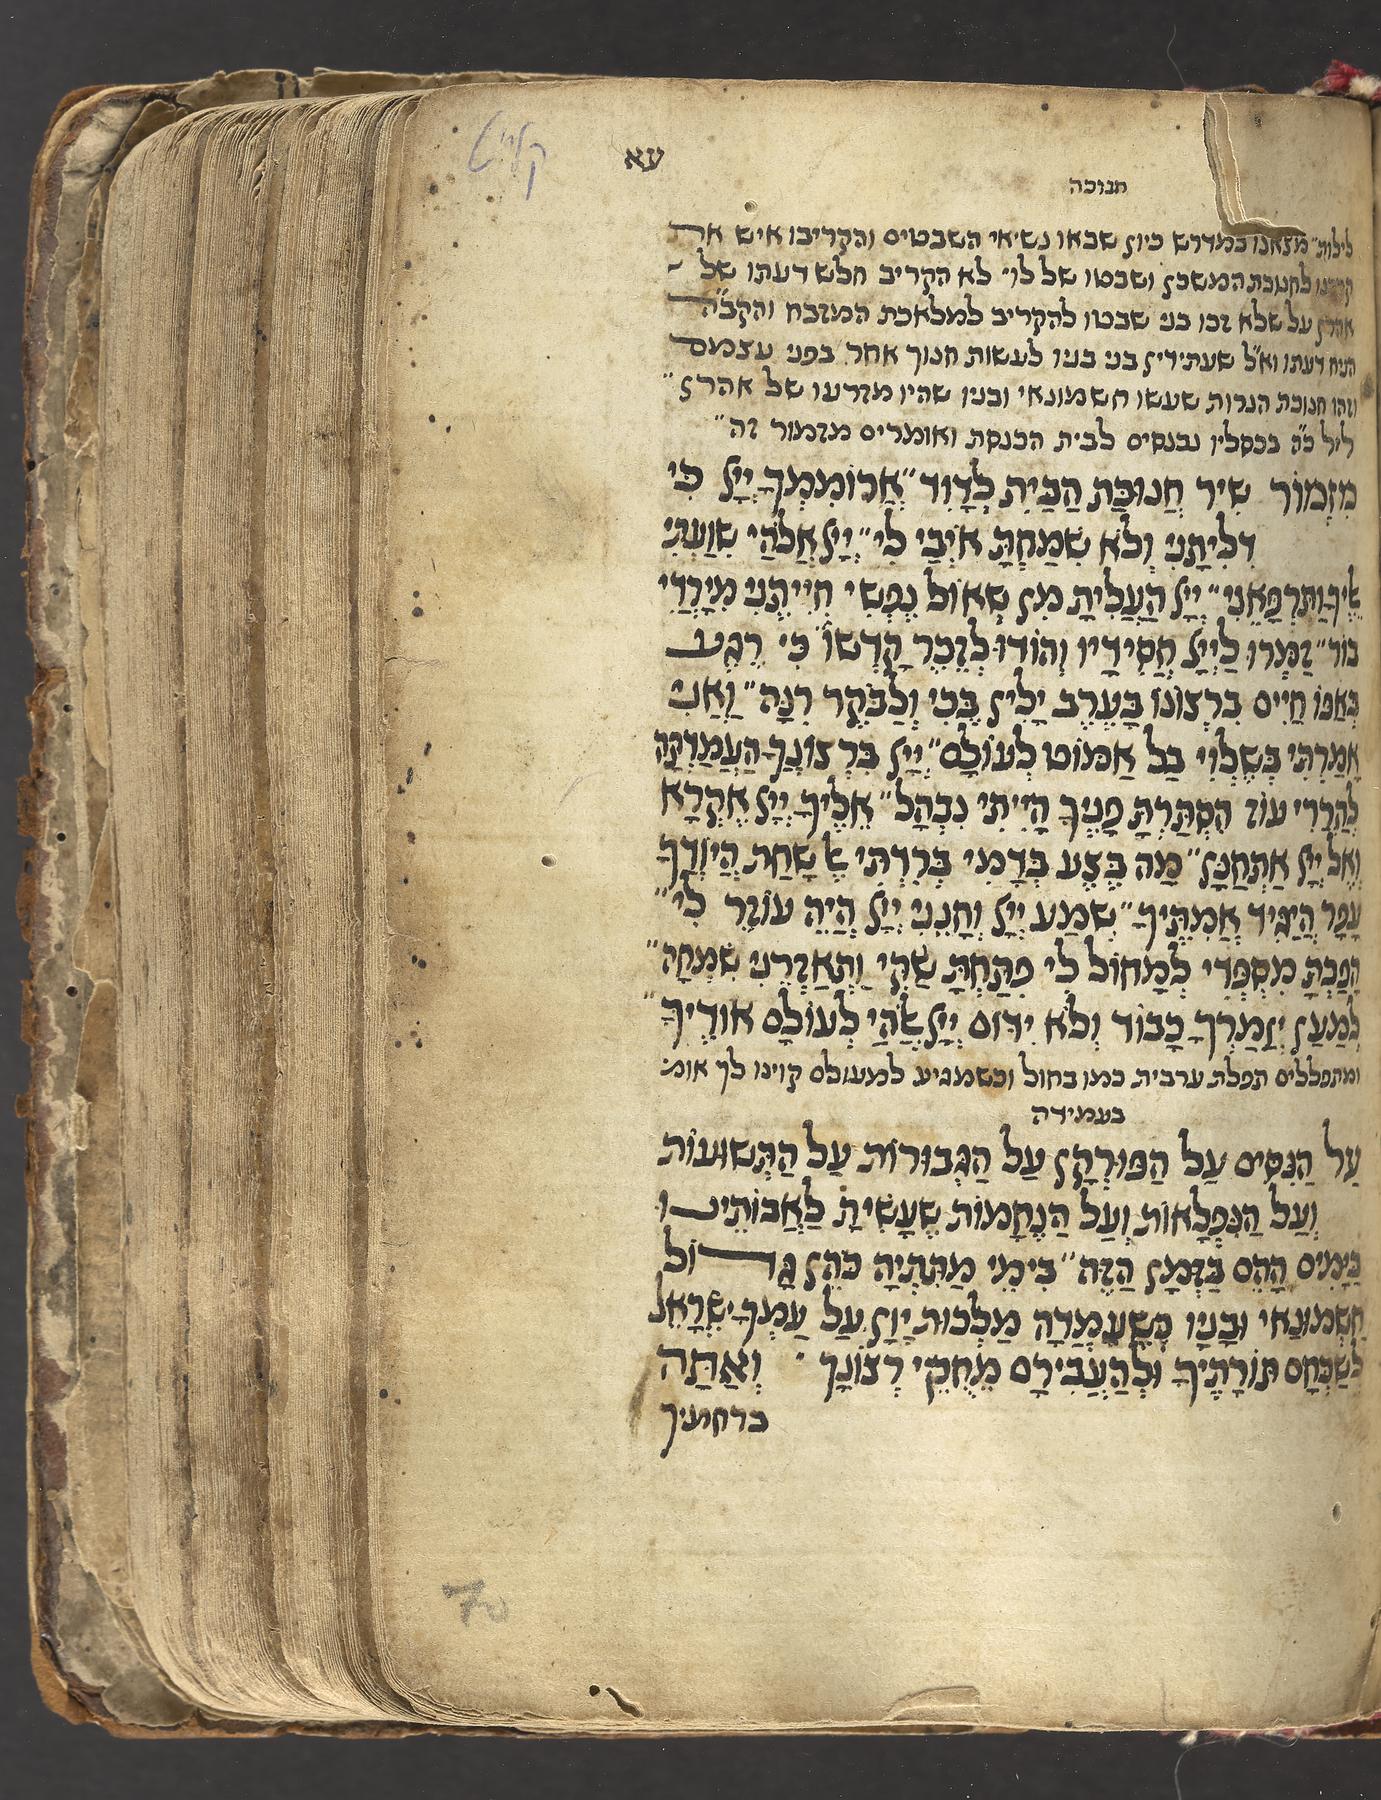 עא
חנוכה
לילות״ מצאנו במדרש כיון שבאו נשיאי השבטים והקריבו איש את
קרבנו לחנוכת המשכן ושבטו של לוי לא הקריב חלש דעתו של
אהרן על שלא זכו בני שבטו להקריב למלאכת המזבח והקב״ה
הניח דעתו וא״ל שעתידין בני בניו לעשות חנוך אחר בפני עצמם
וזהו חנוכת הנרות שעשו חשמונאי ובניו שהיו מזרעו של אהרן״
ליל כ״ה בכסליו נכנסים לבית הכנסת ואומרים מזמור זה״
מִזְמוֹר שִׁיר חֲנוּכַּת הַבַּיִת לְדָוִד״ אֲרוֹמִמְךָ יְיָל כִּי
דִלִיתָנִי וְלֹא שִׂמַחְתָּ אוֹיְבַי לִי״ יְיָל אֱלֹהַי שִׁוַעְתִּי
אֵלֶיךָ וַתִּרְפָּאֵנִי״ יְיָל הֶעֱלִיתָ מִן שְׁאוֹל נַפְשִׁי חִיִּיתַנִי מִיָּרְדִי
בוֹר״ זַמְּרוּ לַיְיָל חֲסִידָיו וְהוֹדוּ לְזֵכֶר קָדְשׁוֹ כִּי רֶגַע
בְּאַפּוֹ חַיִּים בִּרְצוֹנוֹ בָּעֶרֶב יָלִין בֶּכִי וְלַבֹּקֶר רִנָּה״ וַאֲנִי
אָמַרְתִּי בְשַׁלְוִי בַּל אֶמּוֹט לְעוֹלָם״ יְיָל בִּרְצוֹנְךָ הֶעֱמַדְתָּה
לְהַרְרִי עוֹז הִסְתַּרְתָּ פָנֶיךָ הָיִיתִי נִבְהָל״ אֵלֶיךָ יְיָל אֶקְרָא
וְאֶל יְיָל אֶתְחַנָּן״ מַה בֶּצַע בְּדָמִי בְּרִדְתִּי אֶל שָׁחַת הֲיוֹדְךָ
עָפָר הֲיַגִּיד אֲמִתֶּיךָ״ שְׁמַע יְיָל וְחָנֵּנִי יְיָל הֱיֵה עוֹזֵר לִי״
הָפַכְתָּ מִסְפְּדִי לְמָחוֹל לִי פִּתַּחְתָּ שַׂקִּי וַתְּאַזְּרֵנִי שִׂמְחָה״
לְמַעַן יְזַמֶּרְךָ כָבוֹד וְלֹא יִדּוֹם יְיָל אֱלֹהַי לְעוֹלָם אוֹדֶיךָּ״
ומתפללים תפלת ערבית כמו בחול וכשמגיע למעולם קוינו לך אומ׳
בעמידה
עַל הַנִּסִּים עַל הַפּוּרְקָן עַל הַגְּבוּרוֹת עַל הַתְּשׁוּעוֹת
וְעַל הַנִּפְלָאוֹת וְעַל הַנֶּחָמוֹת שֶׁעָשִׂיתָ לַאֲבוֹתֵינוּ
בַּיָּמִים הָהֵם בַּזְּמַן הַזֶּה״ בִּימֵי מַתִּתְיָה כֹּהֵן גָּדוֹל
חַשְׁמוּנַאי וּבָנָיו כְּשֶׁעָמְדָה מַלְכוּת יָוָן עַל עַמְּךָ יִשְׂרָאֵל
לְשַׁכְּחָם תּוֹרָתֶיךָ וּלְהַעֲבִירָם מֵחֻקֵּי רְצוֹנָךְ וְאַתָּה
ברחמיך
70